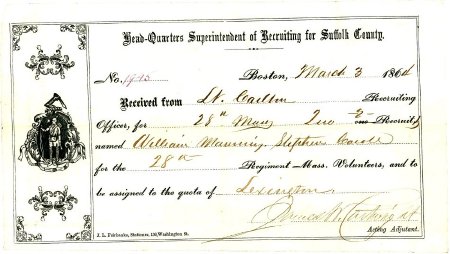 Head-Quarters Superintendent of Recruiting for Suffolk County.
No.
Boston, March 3 1864
Received from Lt. Recruiting
Officer for 28th Mass Two 2 one Recruits
named William Manning Stephen
for the 28th Regiment Mass. Volunteers, and to
be assigned to the quota of Lexington
Acting Adjutant.
J. L. Fairbanks, Stationer, 136, Washington St.